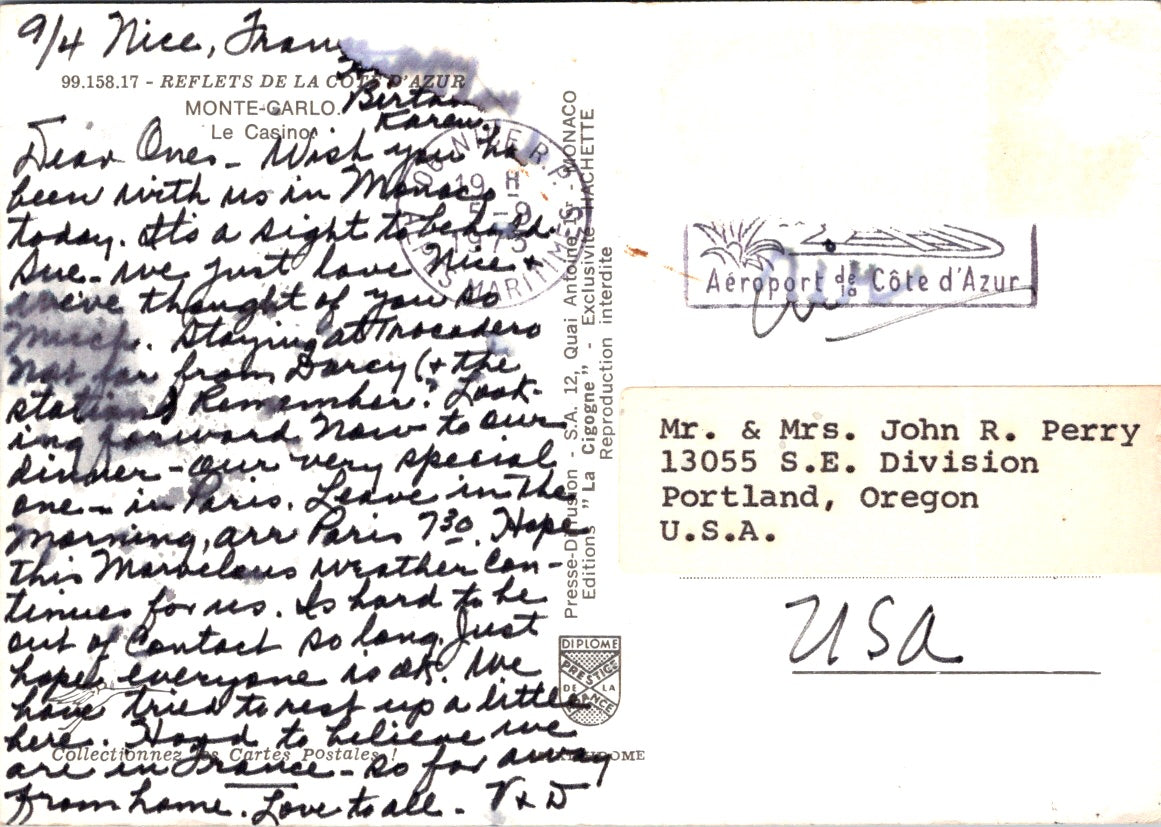 9/4 Nice, Fran
99.158.17 - REFLETS DE LA COTE D'AZUR
MONTE-CARLO.
Le Casino
Karen.
Dear Ones - Wish you ha
been with us in Monaco
today. It's a sight to behold.
Sue - we just love Nice +
we've thought of you so
much. Staying at Trocadero
not far from Darcy (+ the
station) Remember? Look-
ing forward now to our
dinner - our very special
one - in Paris. Leave in the
morning, arr Paris 7 30. Hope
this Marvelous weather con-
tinues for us. Is hard to be
out of Contact so long. Just
hope everyone is ok. We
have tried to rest up a little
here. Hard to believe we
are in France - so far away
from home. Love to all - V + D
Collectionnez les Cartes Postales !
06 NICE R.P.
19 H
5 - 9
1973
ALPES MARITIMES
Presse-Diffusion - S.A. 12, Quai Antoine 1er - MONACO
Editions "La Cigogne" - Exclusivité HACHETTE
Reproduction interdite
DIPLOME
PRESTIGE
DE LA
FRANCE
Aéroport de la Côte d'Azur
Mr. & Mrs. John R. Perry
13055 S.E. Division
Portland, Oregon
U.S.A.
USA